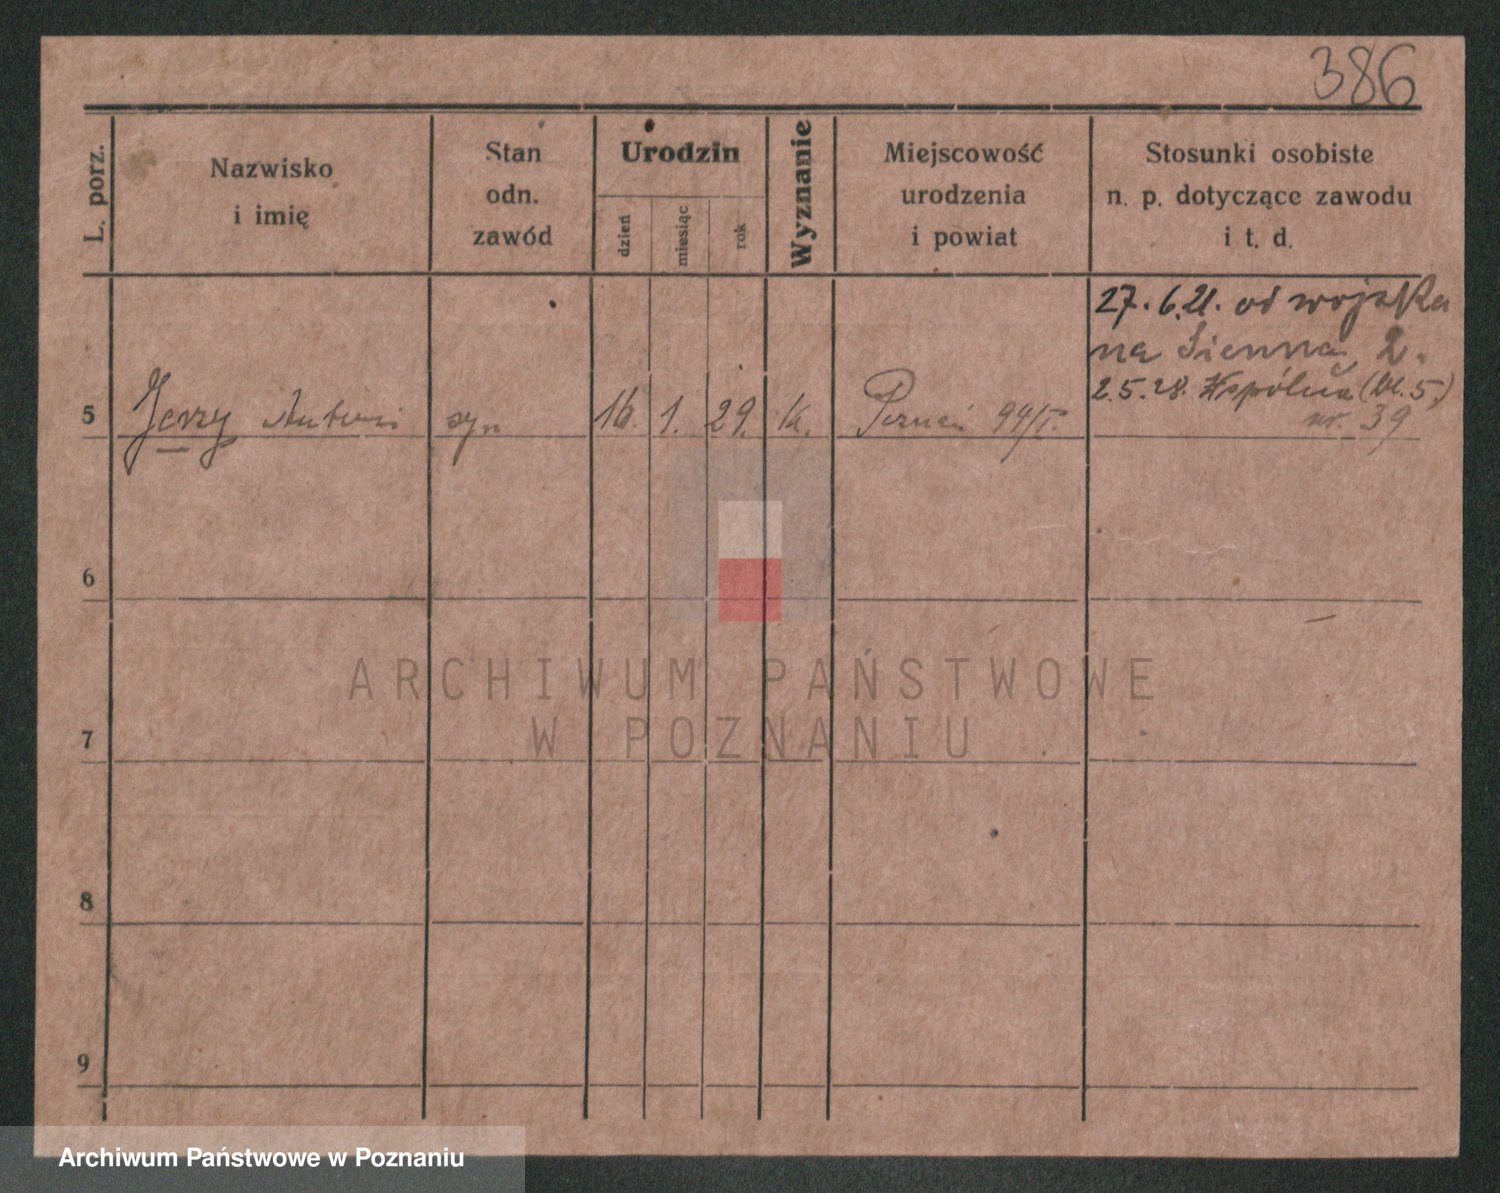 386
L. porz.
Nazwisko
i imię
Stan
odn.
zawód
Urodzin
dzień
miesiąc
rok
Wyznanie
Miejscowość
urodzenia
i powiat
Stosunki osobiste
n. p. dotyczące zawodu
i t. d.
27.6.21. od wojska
na Sienna 2.
2.5.28. Wspólna
nr. 39
5 Jerzy Antoni syn 16. 1. 29. k. Poznań 94/I.
6
7
8
9
ARCHIWUM PAŃSTWOWE
W POZNANIU
Archiwum Państwowe w Poznaniu